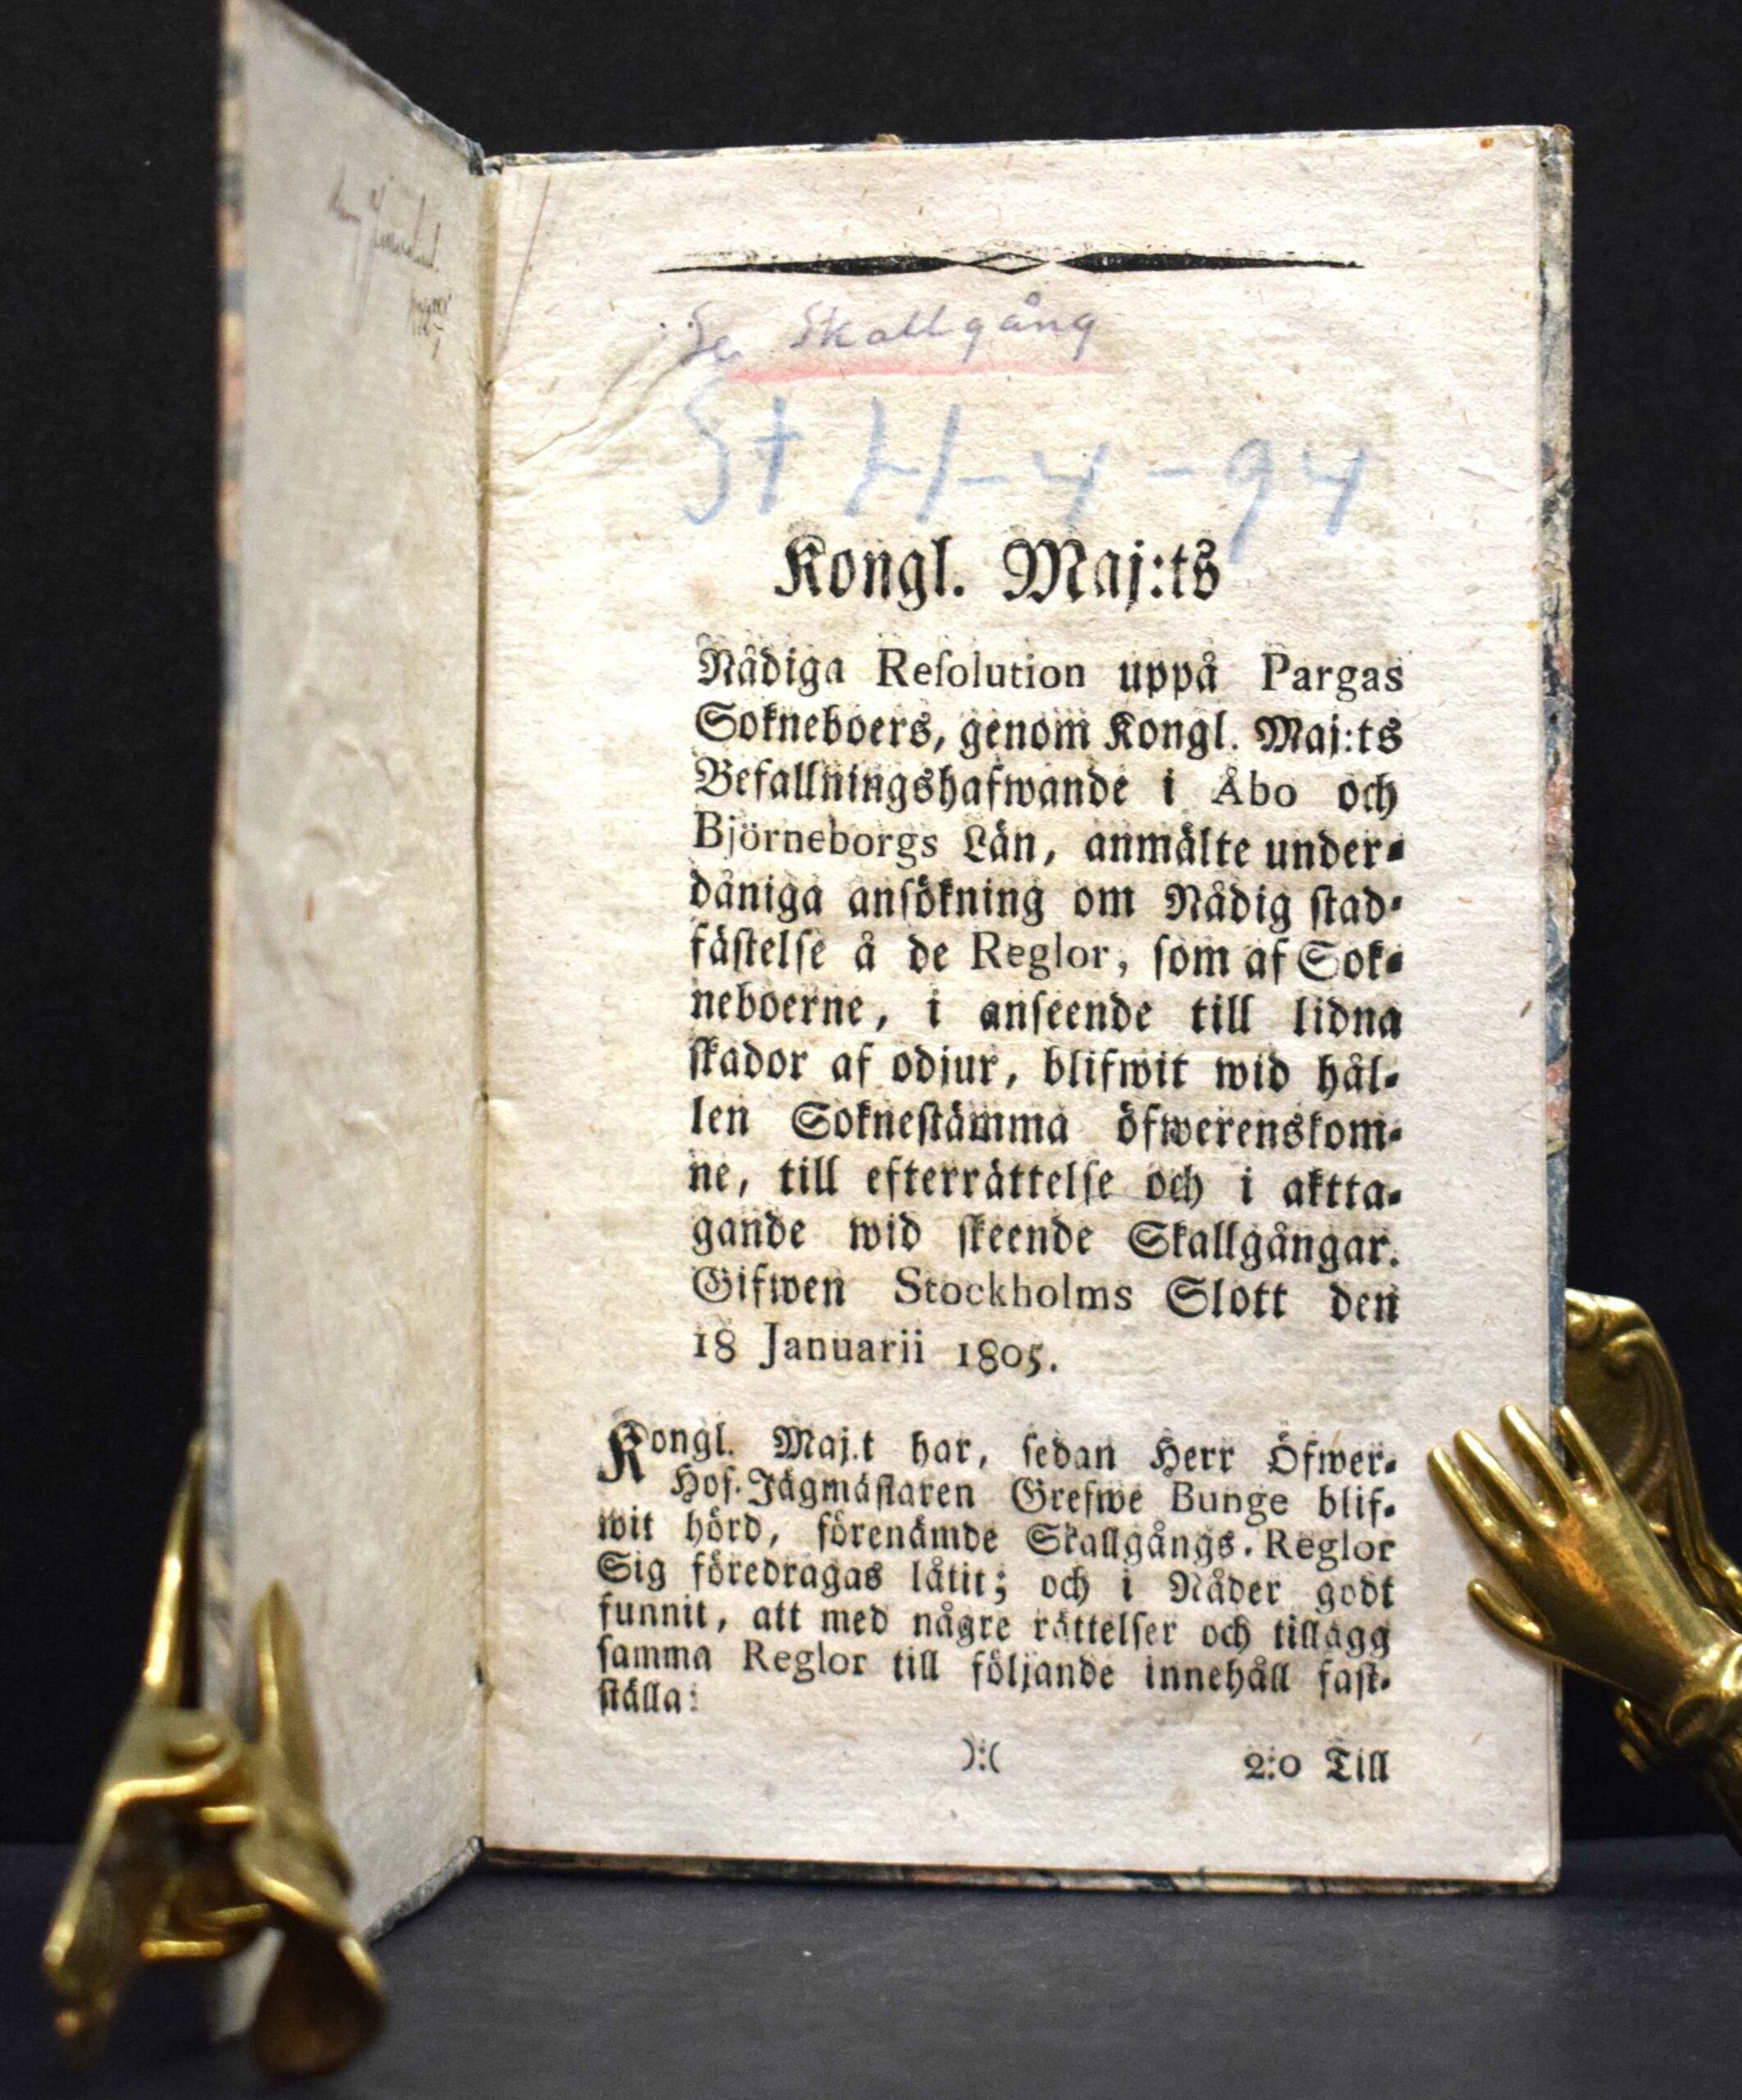 Se Skallgång
St H-4-94
Kongl. Maj:ts
Nådiga Resolution uppå Pargas
Sokneboers, genom Kongl. Maj:ts
Befallningshafwande i Åbo och
Björneborgs Län, anmälte under-
dåniga ansökning om Nådig stad-
fästelse å de Reglor, som af Sok-
neboerne, i anseende till lidna
skador af odjur, blifwit wid hål-
len Soknestämma öfwerenskom-
ne, till efterrättelse och i aktta-
gande wid skeende Skallgångar.
Gifwen Stockholms Slott den
18 Januarii 1805.
Kongl. Maj.t har, sedan Herr Öfwer-
Hof-Jägmästaren Grefwe Bunge blif-
wit hörd, förenämde Skallgångs-Reglor
Sig föredragas låtit; och i Nåder godt
funnit, att med någre rättelser och tillägg
samma Reglor till följande innehåll fast-
ställa:
):( 2:o Till